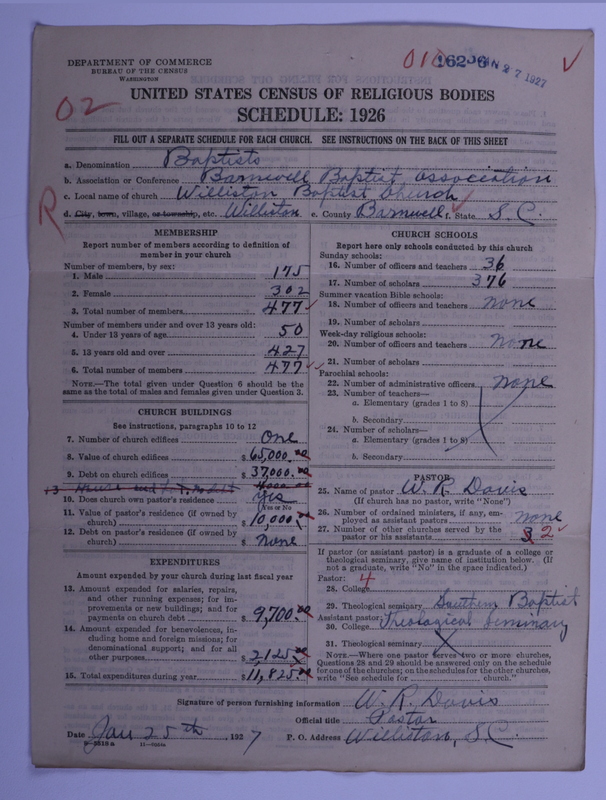 DEPARTMENT OF COMMERCE
BUREAU OF THE CENSUS
WASHINGTON
010
16206
JAN 27 1927
02
UNITED STATES CENSUS OF RELIGIOUS BODIES
SCHEDULE: 1926
FILL OUT A SEPARATE SCHEDULE FOR EACH CHURCH. SEE INSTRUCTIONS ON THE BACK OF THIS SHEET
a. Denomination Baptists
b. Association or Conference Barnwell Baptist association
c. Local name of church Williston Baptist Church
R
d. City, town, village, or township, etc. Williston e. County Barnwell f. State S.C.
MEMBERSHIP
Report number of members according to definition of
member in your church
Number of members, by sex:
1. Male 175
2. Female 302
3. Total number of members 477
Number of members under and over 13 years old:
4. Under 13 years of age 50
5. 13 years old and over 427
6. Total number of members 477
NOTE.—The total given under Question 6 should be the
same as the total of males and females given under Question 3.
CHURCH BUILDINGS
See instructions, paragraphs 10 to 12
7. Number of church edifices One
8. Value of church edifices $65,000.00
9. Debt on church edifices $37,000.00
10. Does church own pastor's residence yes
(Yes or No)
11. Value of pastor's residence (if owned by
church) $10,000.
12. Debt on pastor's residence (if owned by
church) $ none
EXPENDITURES
Amount expended by your church during last fiscal year
13. Amount expended for salaries, repairs,
and other running expenses; for im-
provements or new buildings; and for
payments on church debt $9,700.00
14. Amount expended for benevolences, in-
cluding home and foreign missions; for
denominational support; and for all
other purposes $2125.00
15. Total expenditures during year $11,825.00
CHURCH SCHOOLS
Report here only schools conducted by this church
Sunday schools:
16. Number of officers and teachers 36
17. Number of scholars 376
Summer vacation Bible schools:
18. Number of officers and teachers none
19. Number of scholars
Week-day religious schools:
20. Number of officers and teachers none
21. Number of scholars
Parochial schools:
22. Number of administrative officers none
23. Number of teachers—
a. Elementary (grades 1 to 8)
b. Secondary
24. Number of scholars—
a. Elementary (grades 1 to 8)
b. Secondary
PASTOR
25. Name of pastor W. R. Davis
(If church has no pastor, write "None")
26. Number of ordained ministers, if any, em-
ployed as assistant pastors none
27. Number of other churches served by the
pastor or his assistants 2
If pastor (or assistant pastor) is a graduate of a college or
theological seminary, give name of institution below. (If
not a graduate, write "No" in the space indicated.)
Pastor: 4
28. College
29. Theological seminary Southern Baptist
Assistant pastor: Theological Seminary
30. College
31. Theological seminary
NOTE.—Where one pastor serves two or more churches,
Questions 28 and 29 should be answered only on the schedule
for one of the churches; on the schedules for the other churches,
write "See schedule for church."
Signature of person furnishing information W. R. Davis
Official title Pastor
Date Jan 25th, 1927 P. O. Address Williston, S.C.